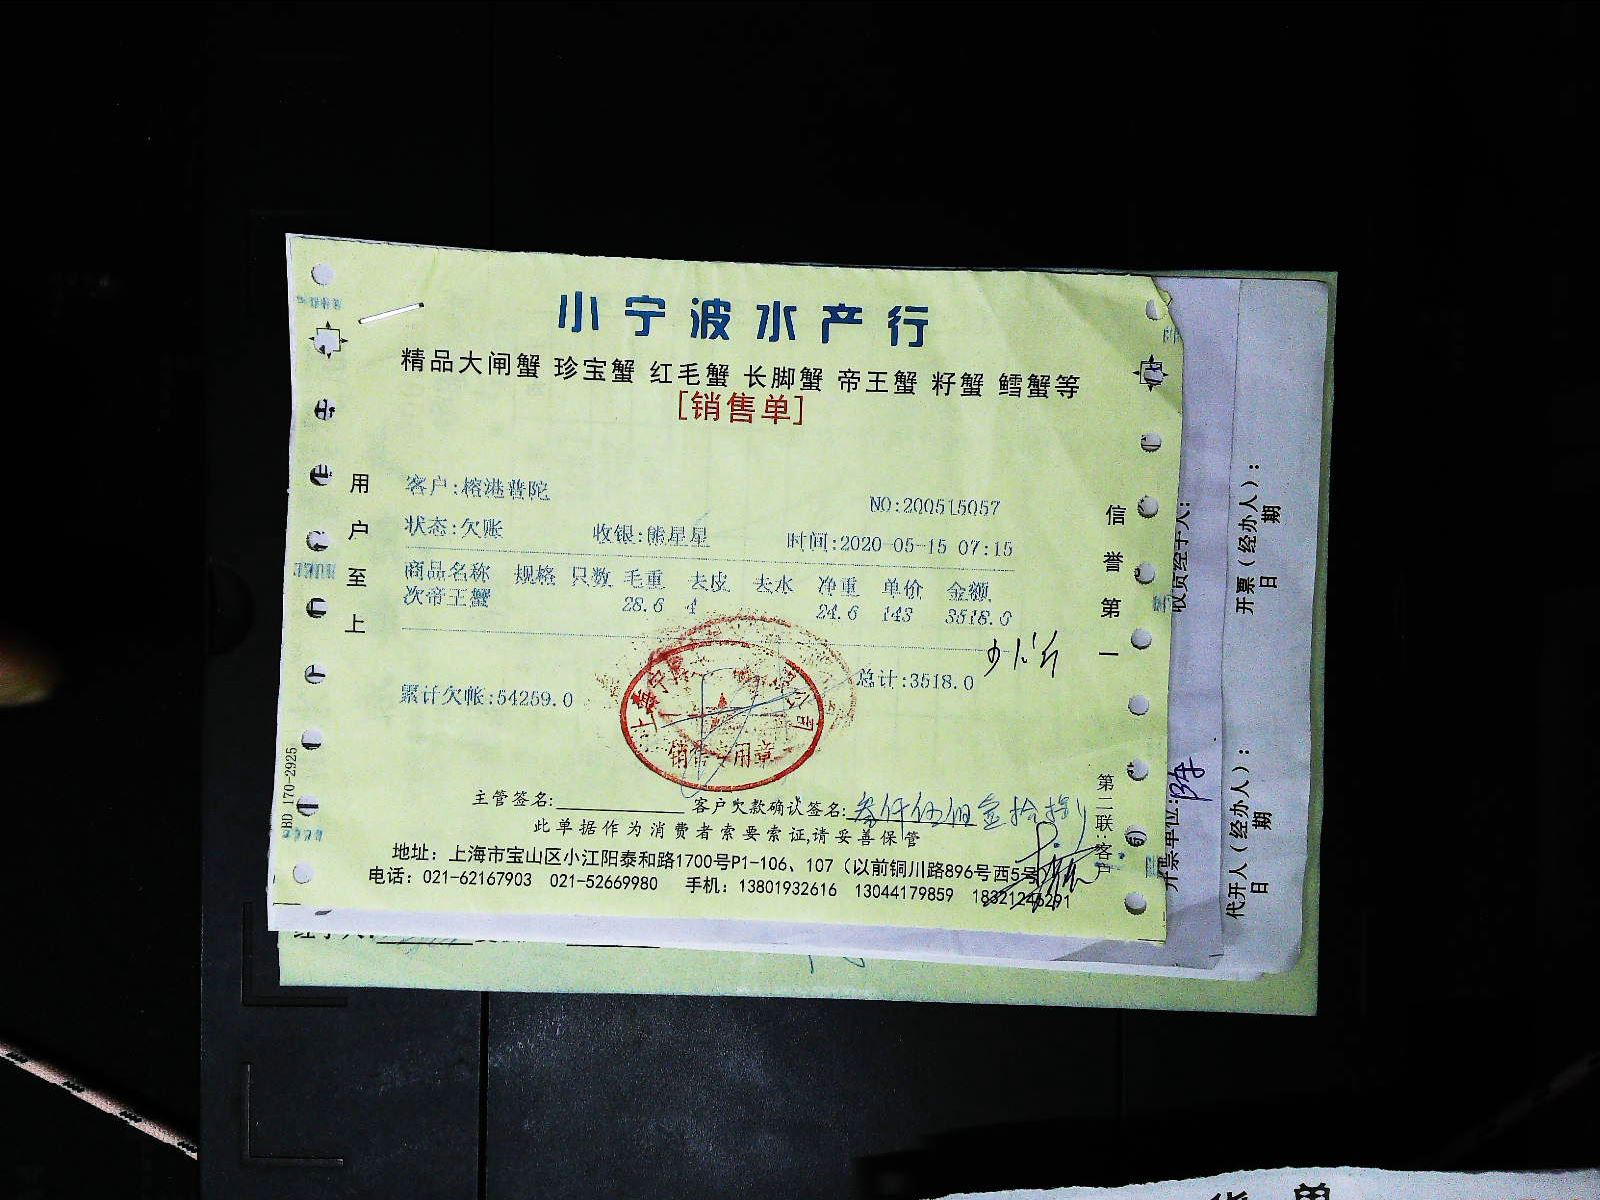 小宁波水产行
精品大闸蟹 珍宝蟹 红毛蟹 长脚蟹 帝王蟹 籽蟹 鳕蟹等
[销售单]
客户:榕港普陀
NO:200515057
状态:欠账 收银:熊星星 时间:2020-05-15 07:15
商品名称 规格 只数 毛重 去皮 去水 净重 单价 金额
次帝王蟹 28.6 4 24.6 143 3518.0
累计欠帐:54259.0
总计:3518.0
销售专用章
主管签名: 客户欠款确认签名:
此单据作为消费者索要索证,请妥善保管
地址：上海市宝山区小江阳泰和路1700号P1-106、107（以前铜川路896号西5号
电话：021-62167903 021-52669980 手机：13801932616 13044179859 18321246291
用户至上
信誉第一
第二联:客户
BD 170-2925
收货经手人:
开票单位:
开票（经办人）：
日期
代开人（经办人）：
日期
单